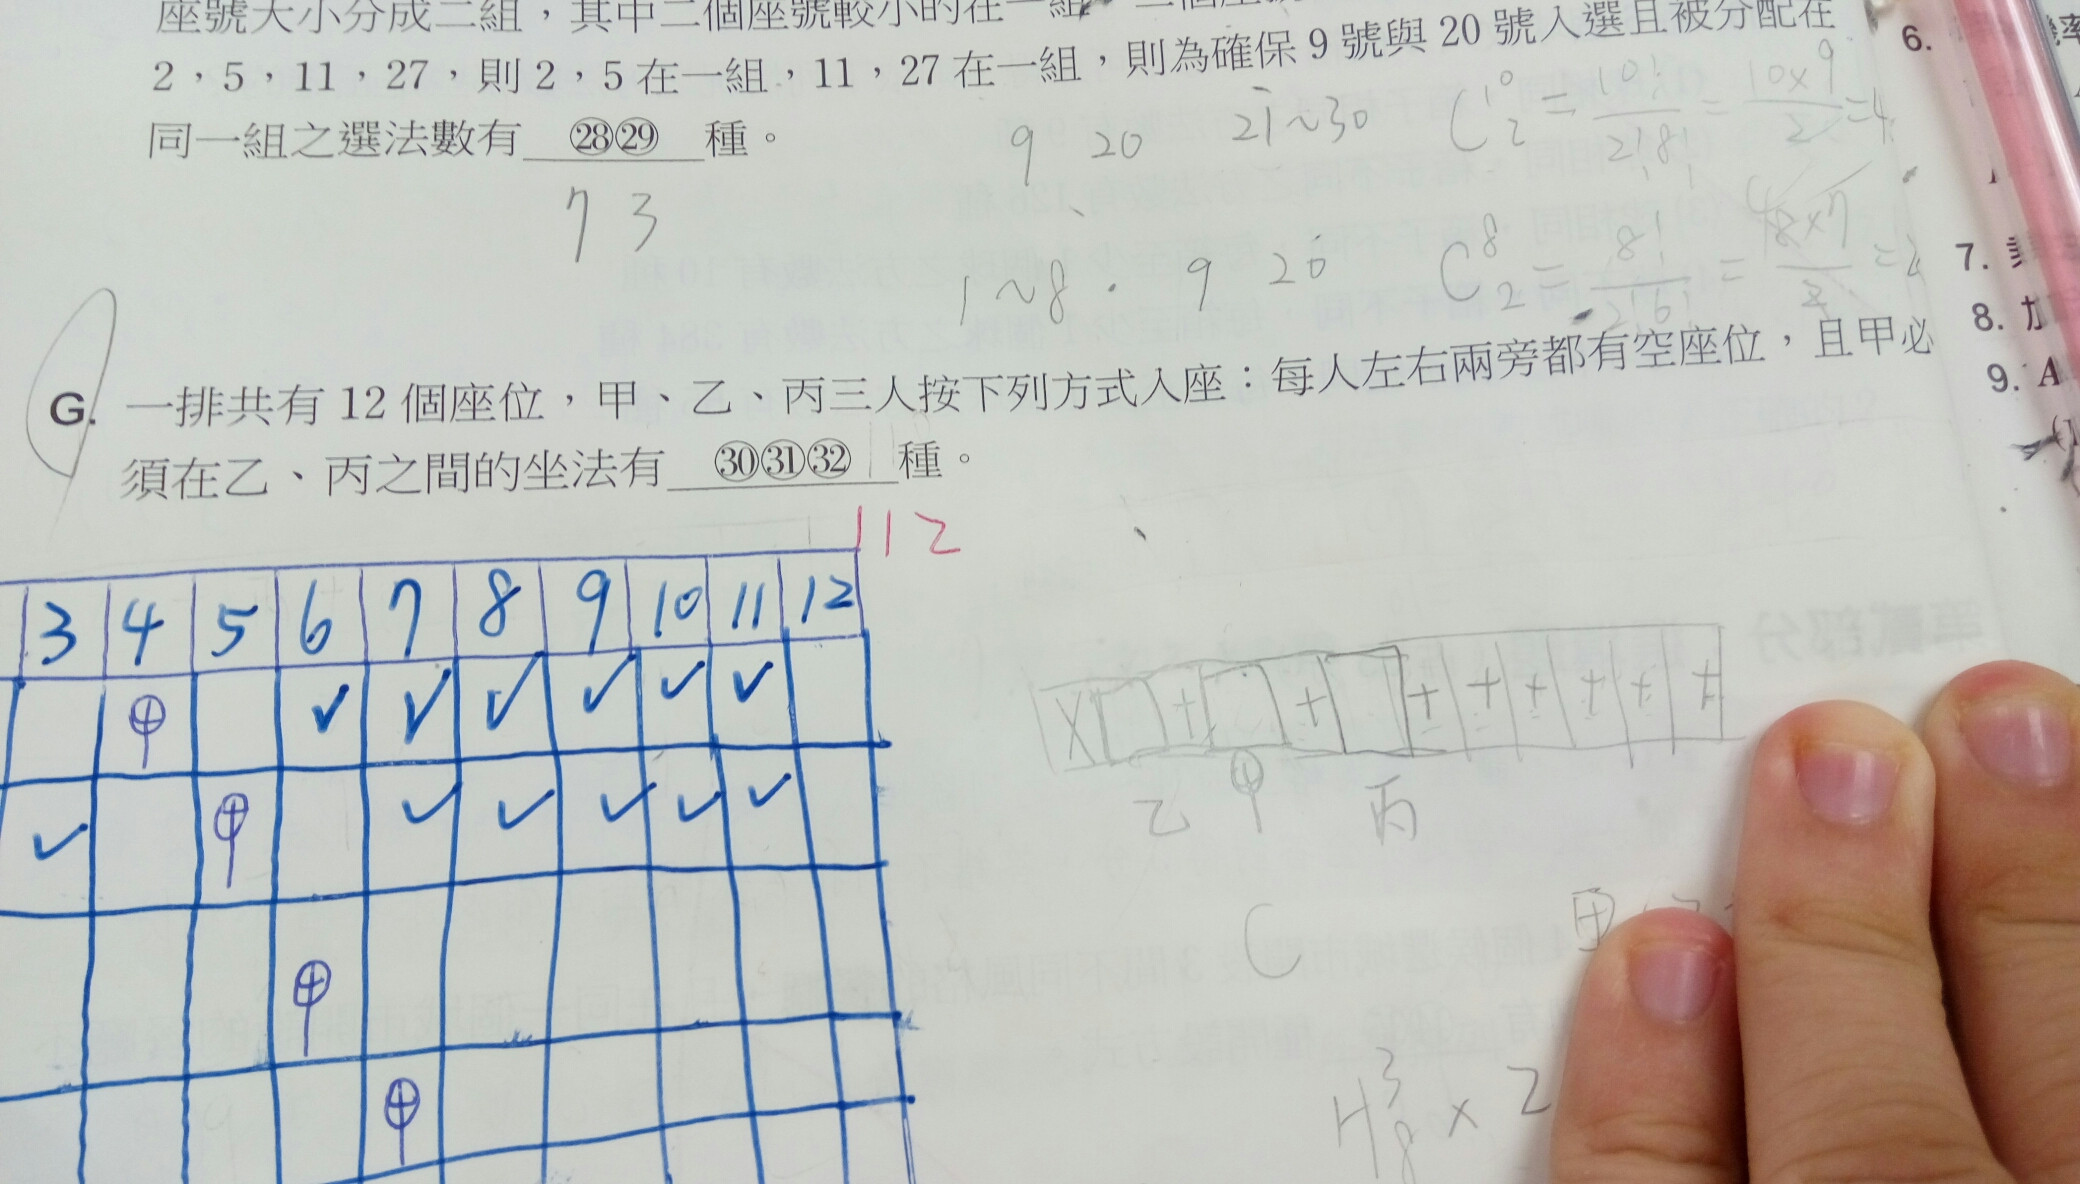 座號大小分成二組，其中二個座號較小的在一組
2，5，11，27，則2，5在一組，11，27在一組，則為確保9號與20號入選且被分配在
同一組之選法數有 ㉘㉙ 種。
7 3
9 20 21~30 C¹⁰₂ = 10!/2!8! = 10×9/2 = 4
1~8 . 9 20 C⁸₂ = 8!/2!6! = 8×7/2 = 2
6.
7.
8. 加
9. A
G. 一排共有12個座位，甲、乙、丙三人按下列方式入座：每人左右兩旁都有空座位，且甲必
須在乙、丙之間的坐法有 ㉚㉛㉜ 種。
112
3 4 5 6 7 8 9 10 11 12
甲 ✓ ✓ ✓ ✓ ✓ ✓
✓ 甲 ✓ ✓ ✓ ✓ ✓
甲
甲
X + + + + + + + +
乙 甲 丙
C 甲
H³₈ × 2